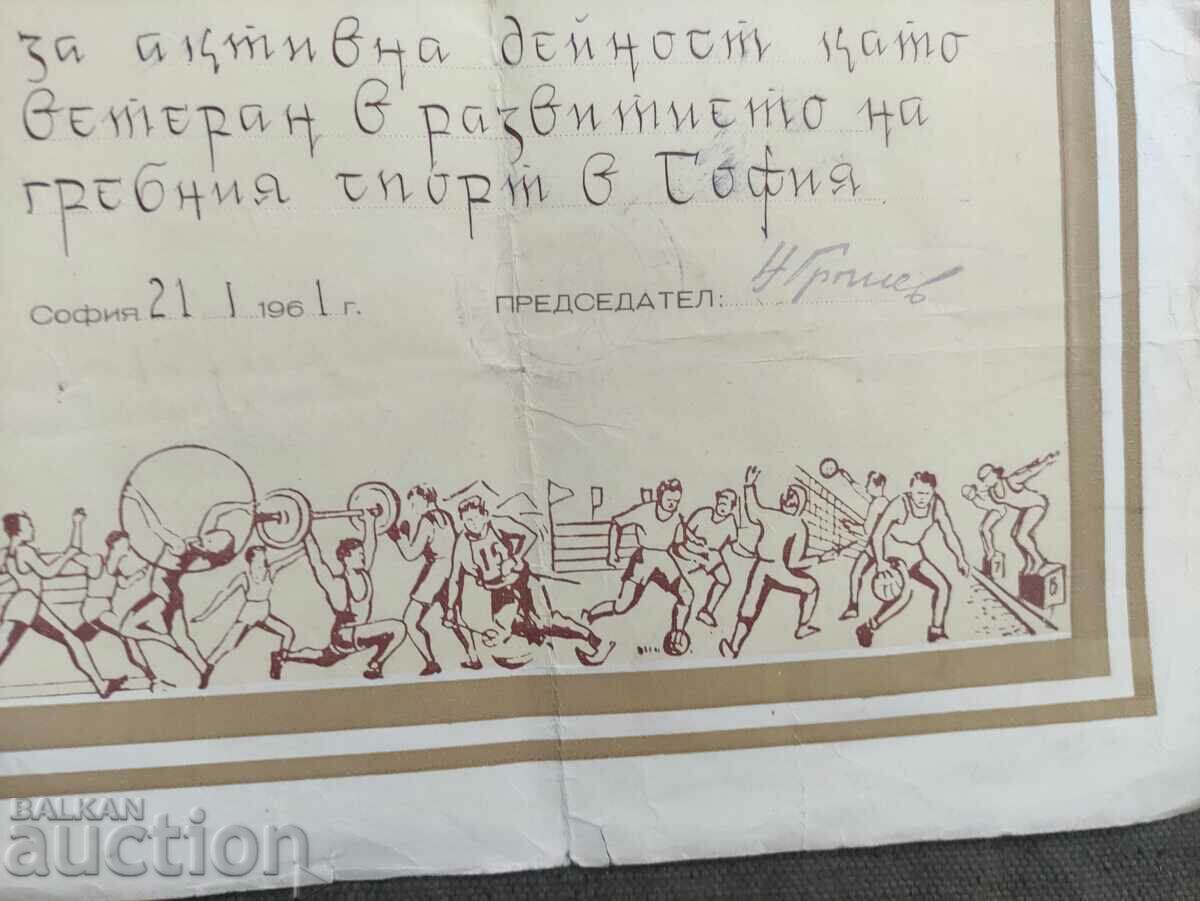 за активна дейност като
ветеран в развитието на
гребния спорт в София
София 21 I 1961 г.
ПРЕДСЕДАТЕЛ:
15
7
6
BALKAN
auction